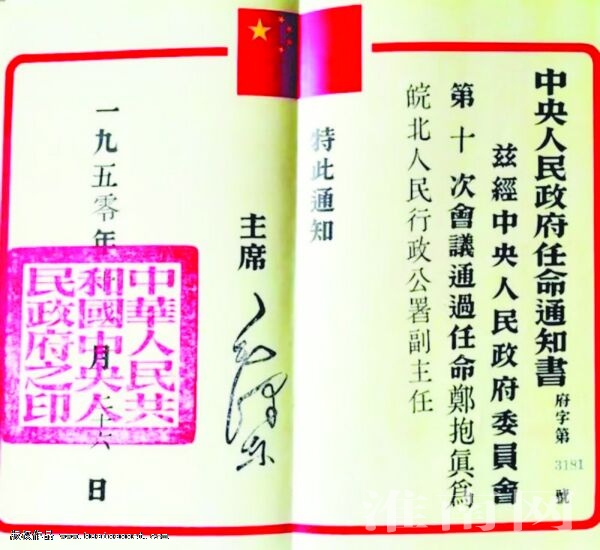 中央人民政府任命通知書
府字第3181號
兹經中央人民政府委員會
第十次會議通過任命鄭抱眞爲
皖北人民行政公署副主任
特此通知
主席
毛泽东
一九五零年 月二十六日
中華人民共
和國中央人
民政府之印
淮南网